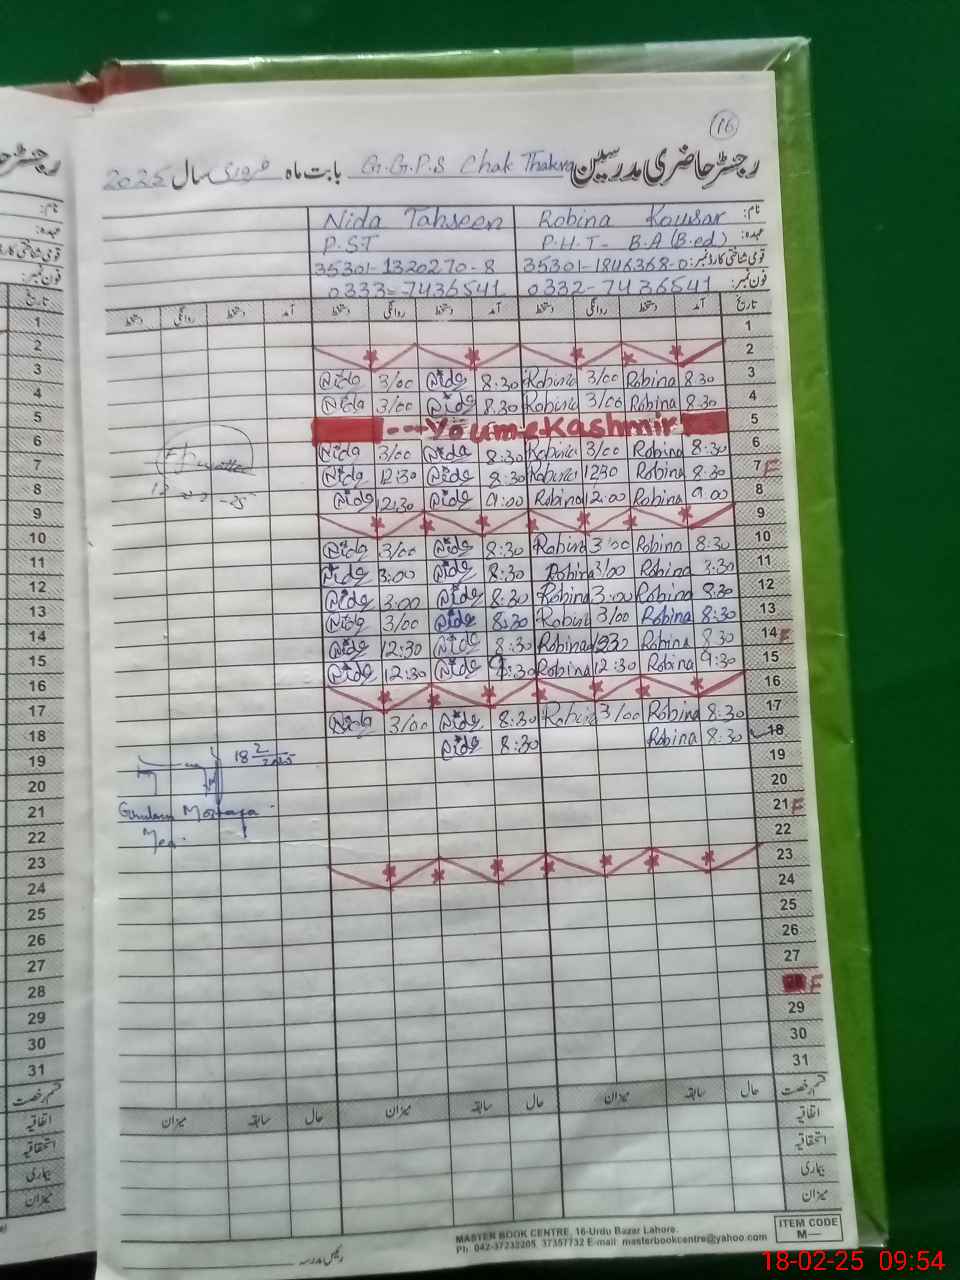 16
رجسٹر حاضری مدرسین G.G.P.S Chak Thakra بابت ماہ فروری سال 2025
نام: Robina Kousar Nida Tahseen
عہدہ: P.H.T - B.A (B.ed) P.S.T
قومی شناختی کارڈ نمبر: 35301-1846368-0 35301-1320270-8
فون نمبر: 0332-7436541 0333-7436541
تاریخ آمد دستخط روانگی دستخط آمد دستخط روانگی دستخط آمد دستخط روانگی دستخط
1
2
3 8.30 Robina 3/00 Robina 8:30 Nida 3/00 Nida
4 8.30 Robina 3/00 Robina 8.30 Nida 3/00 Nida
5 Youm-e-Kashmir
6 8:30 Robina 3/00 Robina 8:30 Nida 3/00 Nida
7 F 8:30 Robina 1230 Robina 8:30 Nida 12:30 Nida
8 9.00 Robina 12.00 Robina 9:00 Nida 12.30 Nida
9
10 8:30 Robina 3:00 Robina 8:30 Nida 3/00 Nida
11 8:30 Robina 3/00 Robina 8:30 Nida 3:00 Nida
12 8:30 Robina 3:00 Robina 8:30 Nida 3:00 Nida
13 8:30 Robina 3/00 Robina 8:30 Nida 3/00 Nida
14 F 8:30 Robina 1230 Robina 8:30 Nida 12:30 Nida
15 9:30 Robina 12:30 Robina 9:30 Nida 12:30 Nida
16
17 8:30 Robina 3/00 Robina 8:30 Nida 3/00 Nida
18 8:30 Robina 8:30 Nida
18 2/2025
19
20
21 F
Ghulam Mortaza
22
23
24
25
26
27
28 F
29
30
31
قسم رخصت حال سابقہ میزان حال سابقہ میزان حال سابقہ میزان
اتفاقیہ
استحقاقیہ
بیماری
میزان
رئیس مدرسہ
MASTER BOOK CENTRE, 16-Urdu Bazar Lahore.
Ph: 042-37232205, 37357732 E-mail: masterbookcentre@yahoo.com
ITEM CODE
M—
رجسٹر حا
نام:
عہدہ:
قومی شناختی کارڈ نمبر
فون نمبر:
تاریخ
1
2
3
4
5
6
7
8
9
10
11
12
13
14
15
16
17
18
19
20
21
22
23
24
25
26
27
28
29
30
31
قسم رخصت
اتفاقیہ
استحقاقیہ
بیماری
میزان
18-02-25 09:54